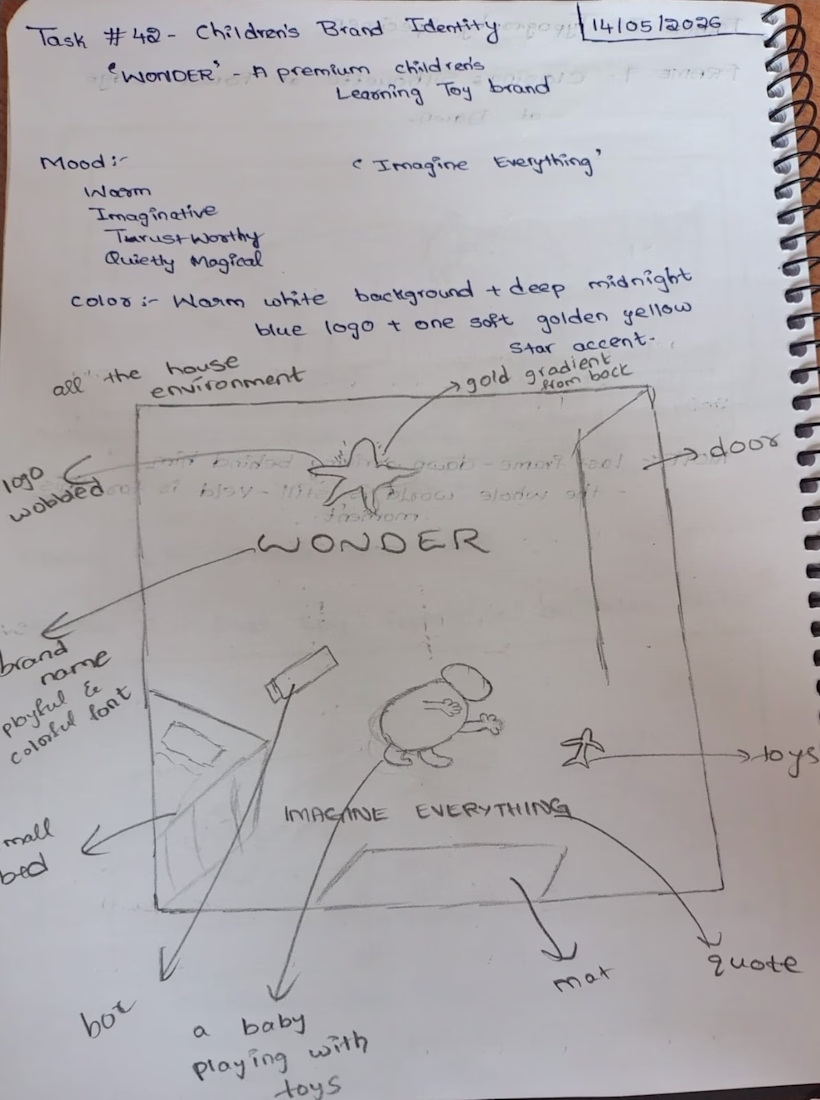 Task #42 - Children's Brand Identity
14/05/2026
'WONDER' - A premium children's
Learning Toy brand
Mood :-
'Imagine Everything'
Warm
Imaginative
Thrustworthy
Quietly Magical
color :- Warm white background + deep midnight
blue logo + one soft golden yellow
star accent.
all the house
environment
gold gradient
from back
door
logo
wobbed
WONDER
brand
name
playful &
colorful font
toys
IMAGINE EVERYTHING
mall
bed
box
a baby
playing with
toys
mat
quote